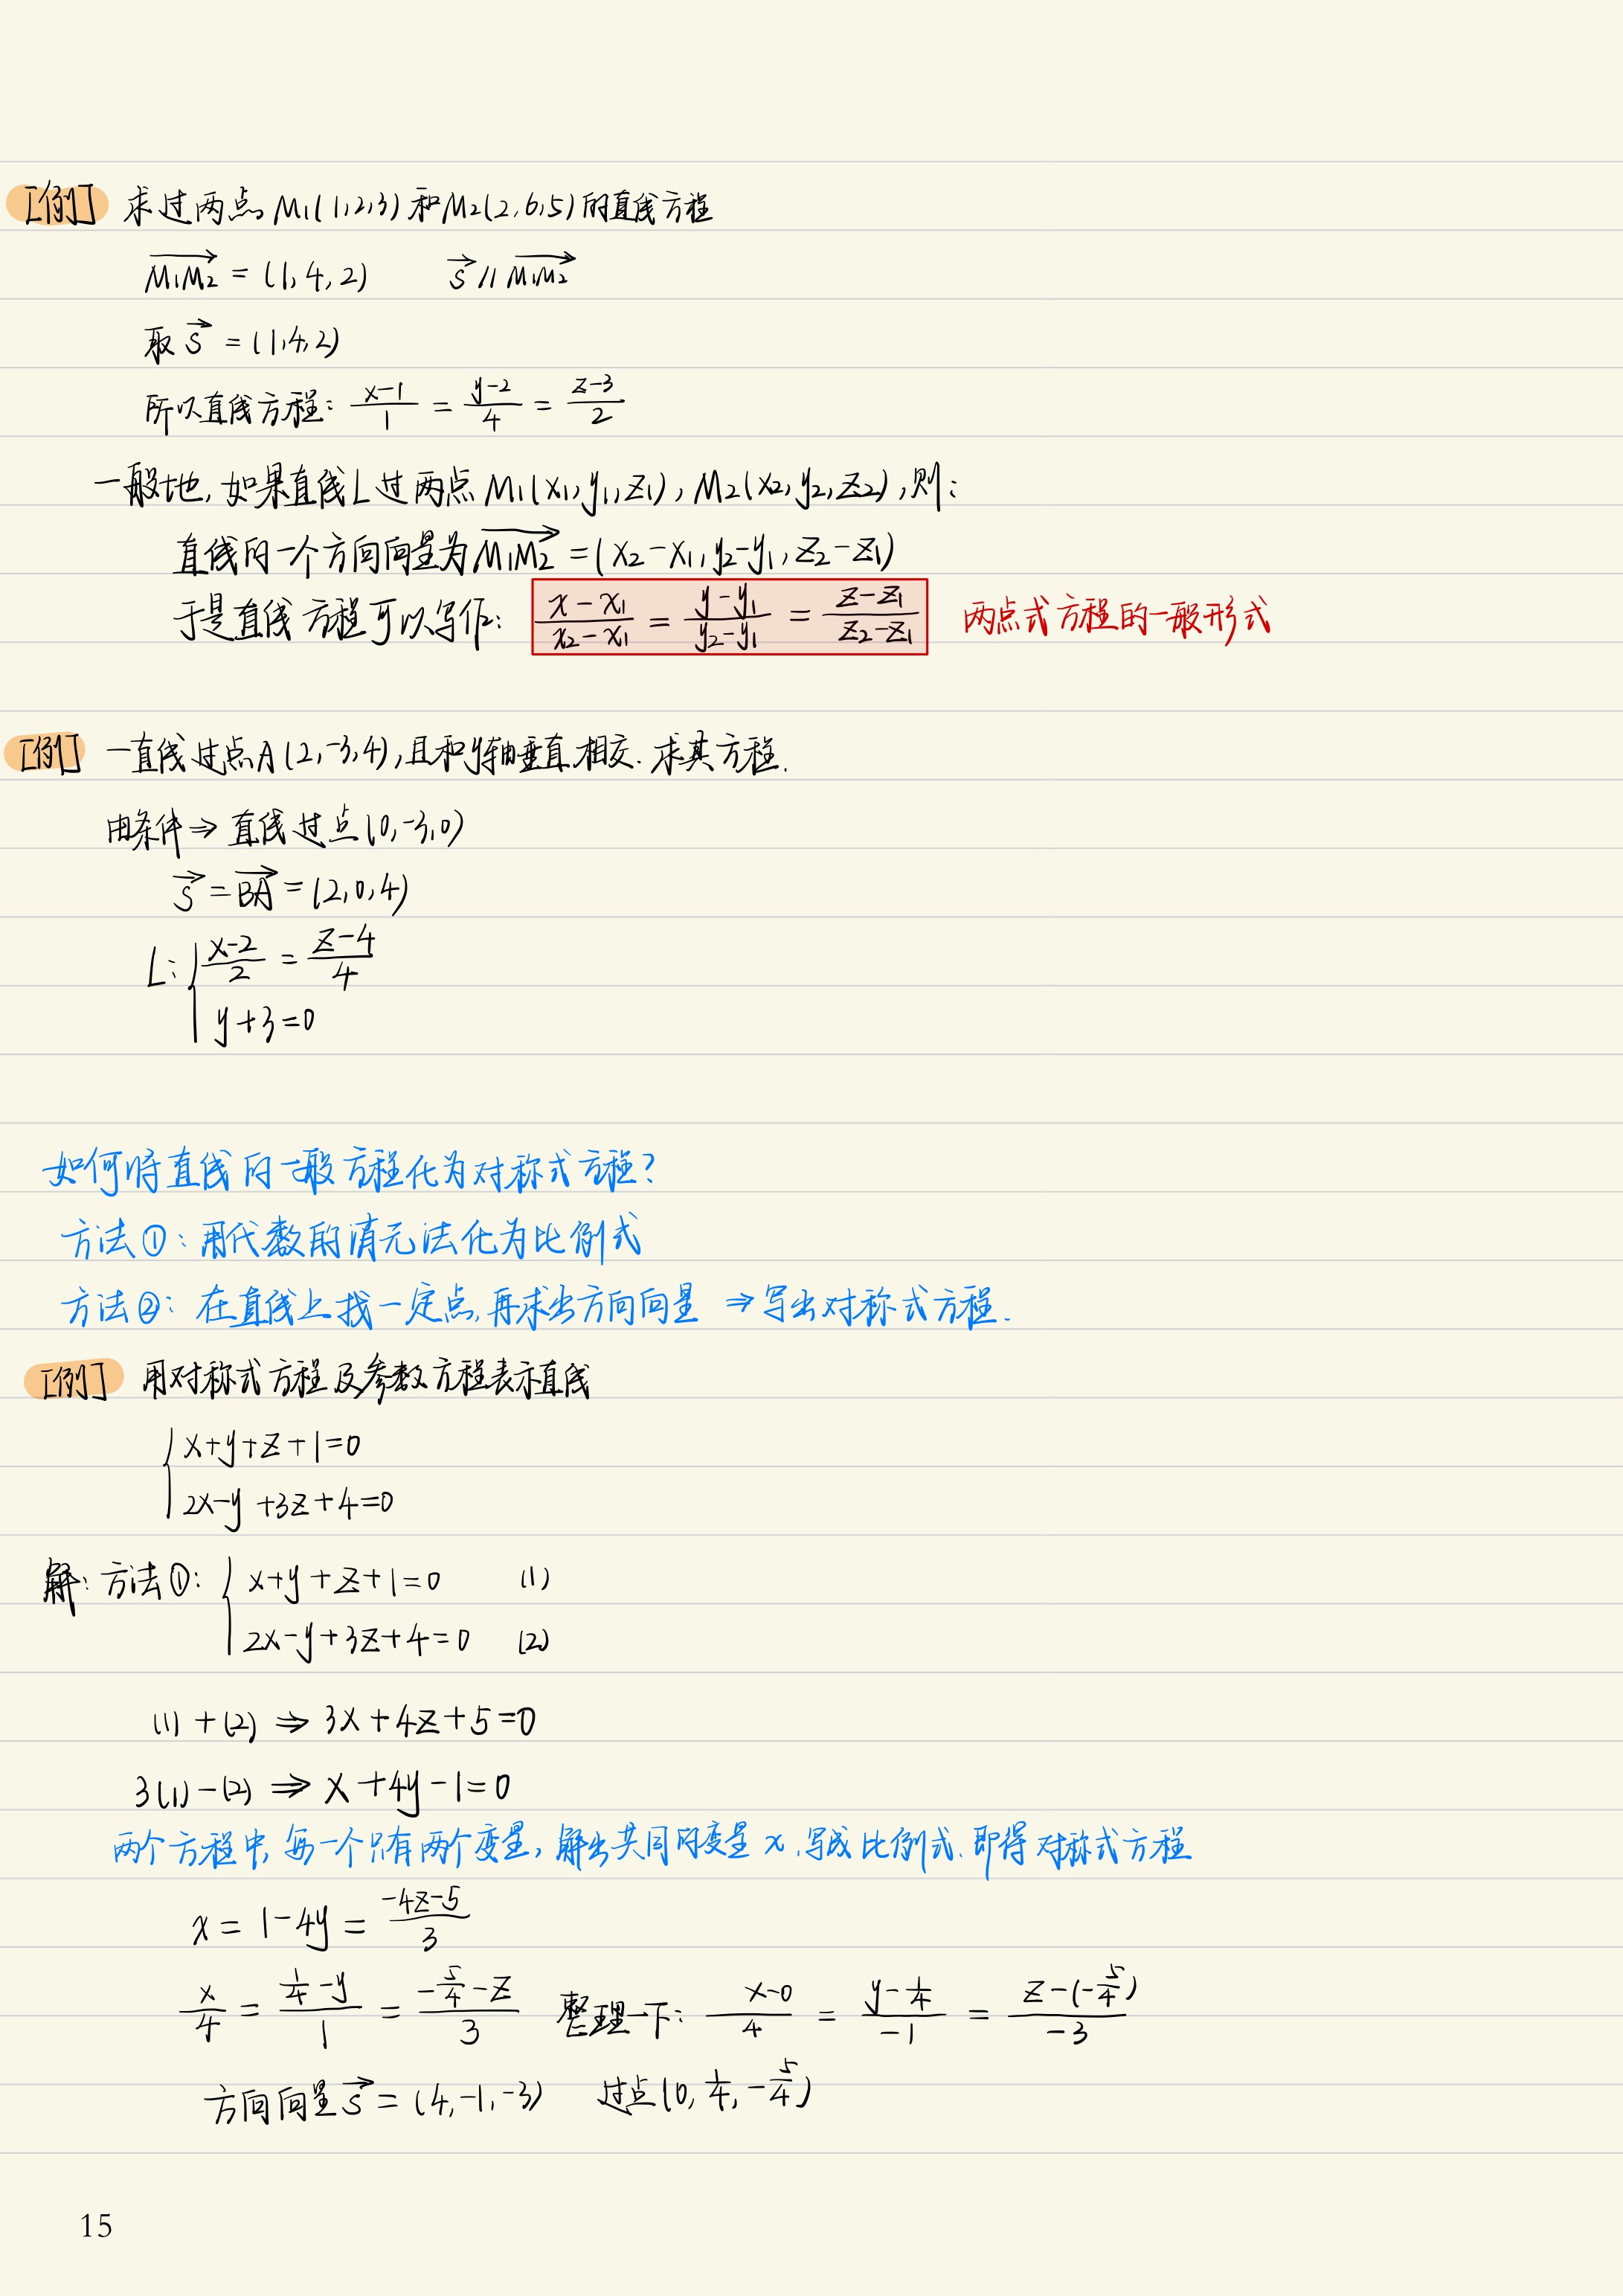 [例] 求过两点 M₁(1,2,3) 和 M₂(2,6,5) 的直线方程
$\overrightarrow{M_1M_2}$ = (1, 4, 2)  $\vec{s}$ // $\overrightarrow{M_1M_2}$
取 $\vec{s}$ = (1,4,2)
所以直线方程: $\frac{x-1}{1} = \frac{y-2}{4} = \frac{z-3}{2}$
一般地, 如果直线L过两点 M₁(x₁, y₁, z₁), M₂(x₂, y₂, z₂), 则:
直线的一个方向向量为 $\overrightarrow{M_1M_2}$ = (x₂-x₁, y₂-y₁, z₂-z₁)
于是直线方程可以写作: $\frac{x-x_1}{x_2-x_1} = \frac{y-y_1}{y_2-y_1} = \frac{z-z_1}{z_2-z_1}$ 两点式方程的一般形式
[例] 一直线过点A(2,-3,4), 且和y轴垂直相交. 求其方程.
由条件 ⇒ 直线过点(0,-3,0)
$\vec{s}$ = $\overrightarrow{BA}$ = (2,0,4)
L: { $\frac{x-2}{2} = \frac{z-4}{4}$
y+3=0
如何将直线的一般方程化为对称式方程?
方法①: 用代数的消元法化为比例式
方法②: 在直线上找一定点, 再求出方向向量 ⇒ 写出对称式方程.
[例] 用对称式方程及参数方程表示直线
{ x+y+z+1=0
2x-y+3z+4=0
解: 方法①: { x+y+z+1=0 (1)
2x-y+3z+4=0 (2)
(1)+(2) ⇒ 3x+4z+5=0
3(1)-(2) ⇒ x+4y-1=0
两个方程中, 每一个只有两个变量, 解出共同的变量 x, 写成比例式, 即得对称式方程
x = 1-4y = $\frac{-4z-5}{3}$
$\frac{x}{4} = \frac{\frac{1}{4}-y}{1} = \frac{-\frac{5}{4}-z}{3}$ 整理一下: $\frac{x-0}{4} = \frac{y-\frac{1}{4}}{-1} = \frac{z-(-\frac{5}{4})}{-3}$
方向向量 $\vec{s}$ = (4,-1,-3) 过点(0, $\frac{1}{4}$, $-\frac{5}{4}$)
15